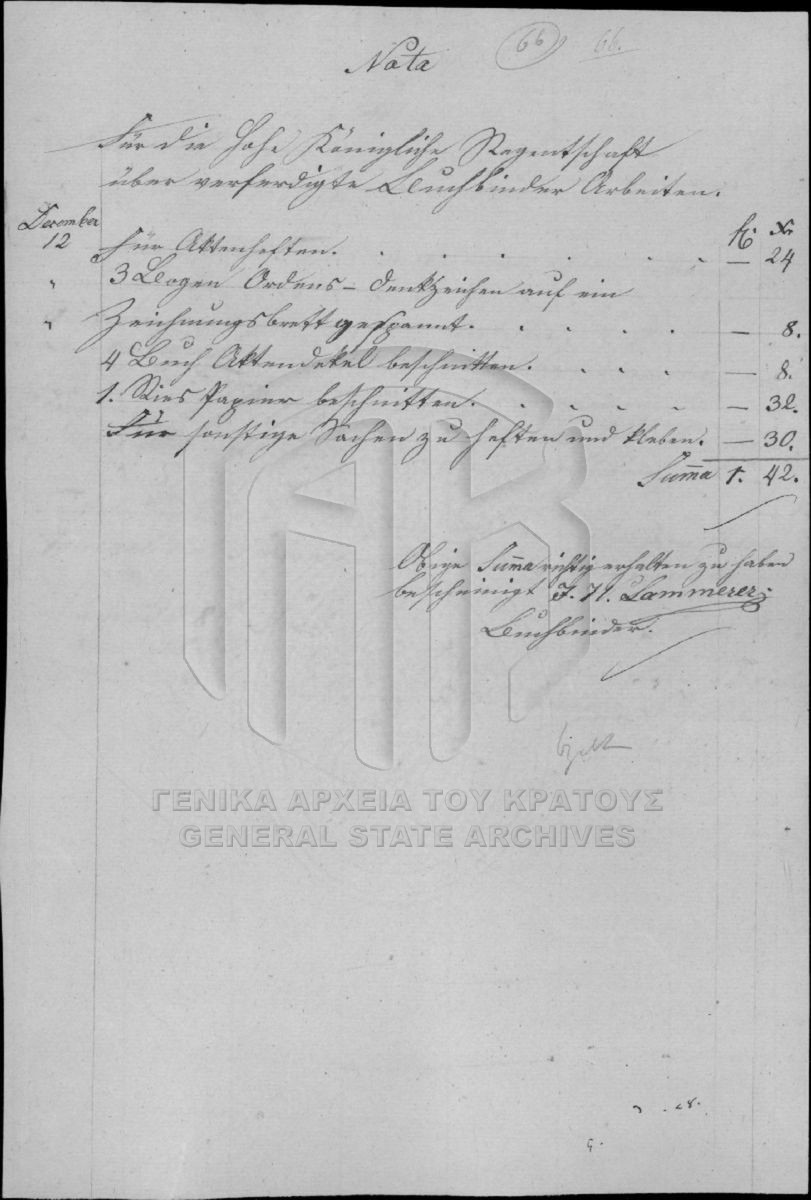 66 66.
Nota
Für die Hohe Königliche Regentschaft
über verferdigte Buchbinder Arbeiten.
December fl: Xr
12 Für Aktenheften. — 24
" 3 Bogen Ordens-Denkzeichen auf ein
" Zeichnungsbrett gespannt. — 8.
4 Buch Aktendekel beschnitten. — 8.
1. Ries Papier beschnitten. — 32.
Für sonstige Sachen zu heften und kleben. — 30.
Summa 1. 42.
Obige Summa richtig erhalten zu haben
bescheinigt J. N. Lammerer
Buchbinder.
ΓΕΝΙΚΑ ΑΡΧΕΙΑ ΤΟΥ ΚΡΑΤΟΥΣ
GENERAL STATE ARCHIVES